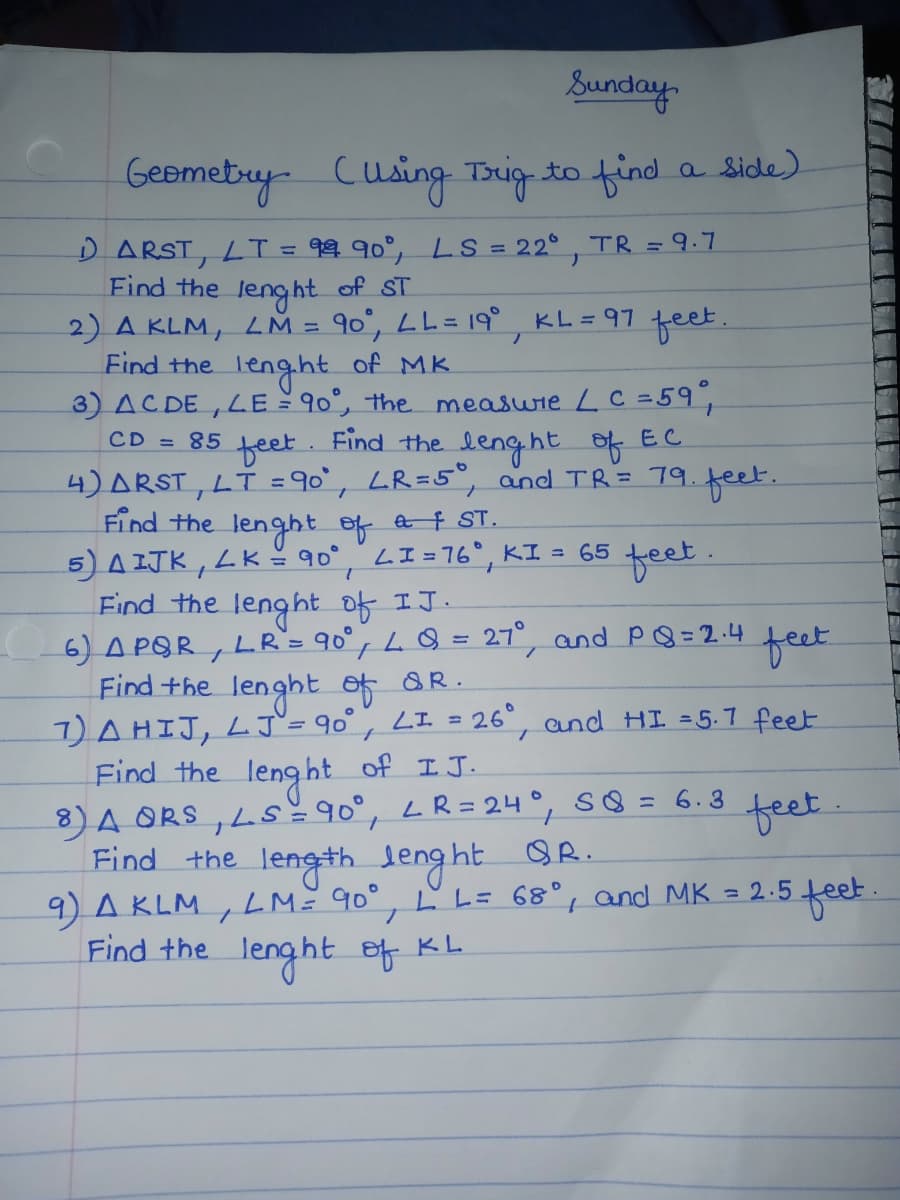 Sunday
Geometry (Using Trig to find a side)
1) ΔRST, ∠T = 90°, ∠S = 22°, TR = 9.7
Find the lenght of ST
2) Δ KLM, ∠M = 90°, ∠L = 19°, KL = 97 feet.
Find the lenght of MK
3) ΔCDE, ∠E = 90°, the measure ∠C = 59°,
CD = 85 feet. Find the lenght of EC
4) ΔRST, ∠T = 90°, ∠R = 5°, and TR = 79. feet.
Find the lenght of ST.
5) Δ IJK, ∠K = 90°, ∠I = 76°, KI = 65 feet.
Find the lenght of IJ.
6) Δ PQR, ∠R = 90°, ∠Q = 27°, and PQ = 2.4 feet
Find the lenght of QR.
7) Δ HIJ, ∠J = 90°, ∠I = 26°, and HI = 5.7 feet
Find the lenght of IJ.
8) Δ QRS, ∠S = 90°, ∠R = 24°, SQ = 6.3 feet.
Find the length lenght QR.
9) Δ KLM, ∠M = 90°, ∠L = 68°, and MK = 2.5 feet.
Find the lenght of KL